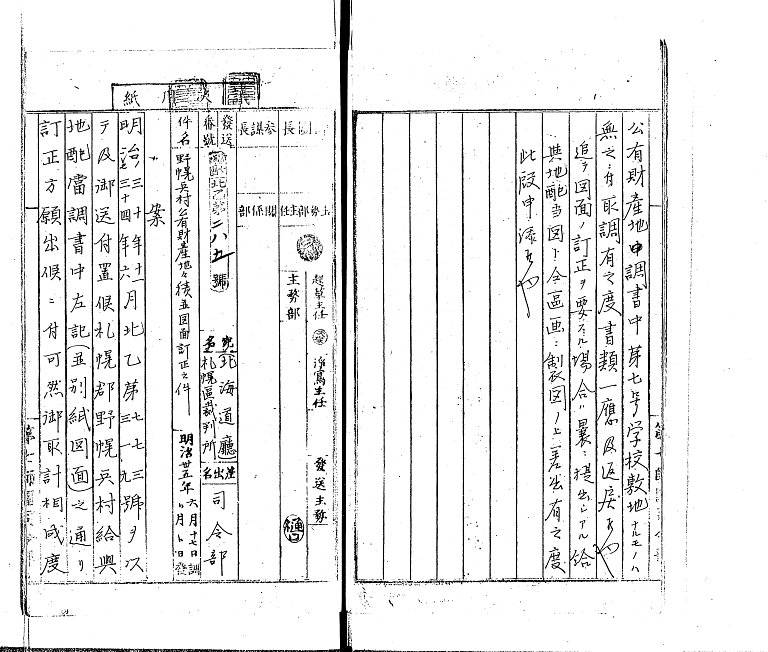 公有財産地申調書中第七号学校敷地ナルモノハ
無之ニ付取調有之度書類一應及返戻候也
追テ図面ノ訂正ヲ要スル場合ハ曩ニ提出シアル給
與地配当図ト合區画ニ製図ノ上差出有之度
此段申添候也
長
參謀長
主務部主任
關係部
起草主任
浄寫主任
發送主務
樋口
主務部
發送番號
北乙第二八九號
宛名
北海道廳
札幌區裁判所
差出名
司令部
件名
野幌兵村公有財産地々積並図面訂正之件
明治廿五年六月十七日
月 日發
案
明治三十年十一月北乙第七七三號ヲ以
三十四年六 三一九
テ及御送付置候札幌郡野幌兵村給與
地配當調書中左記(並別紙図面)之通リ
訂正方願出候ニ付可然御取計相成度
紙
第七師團